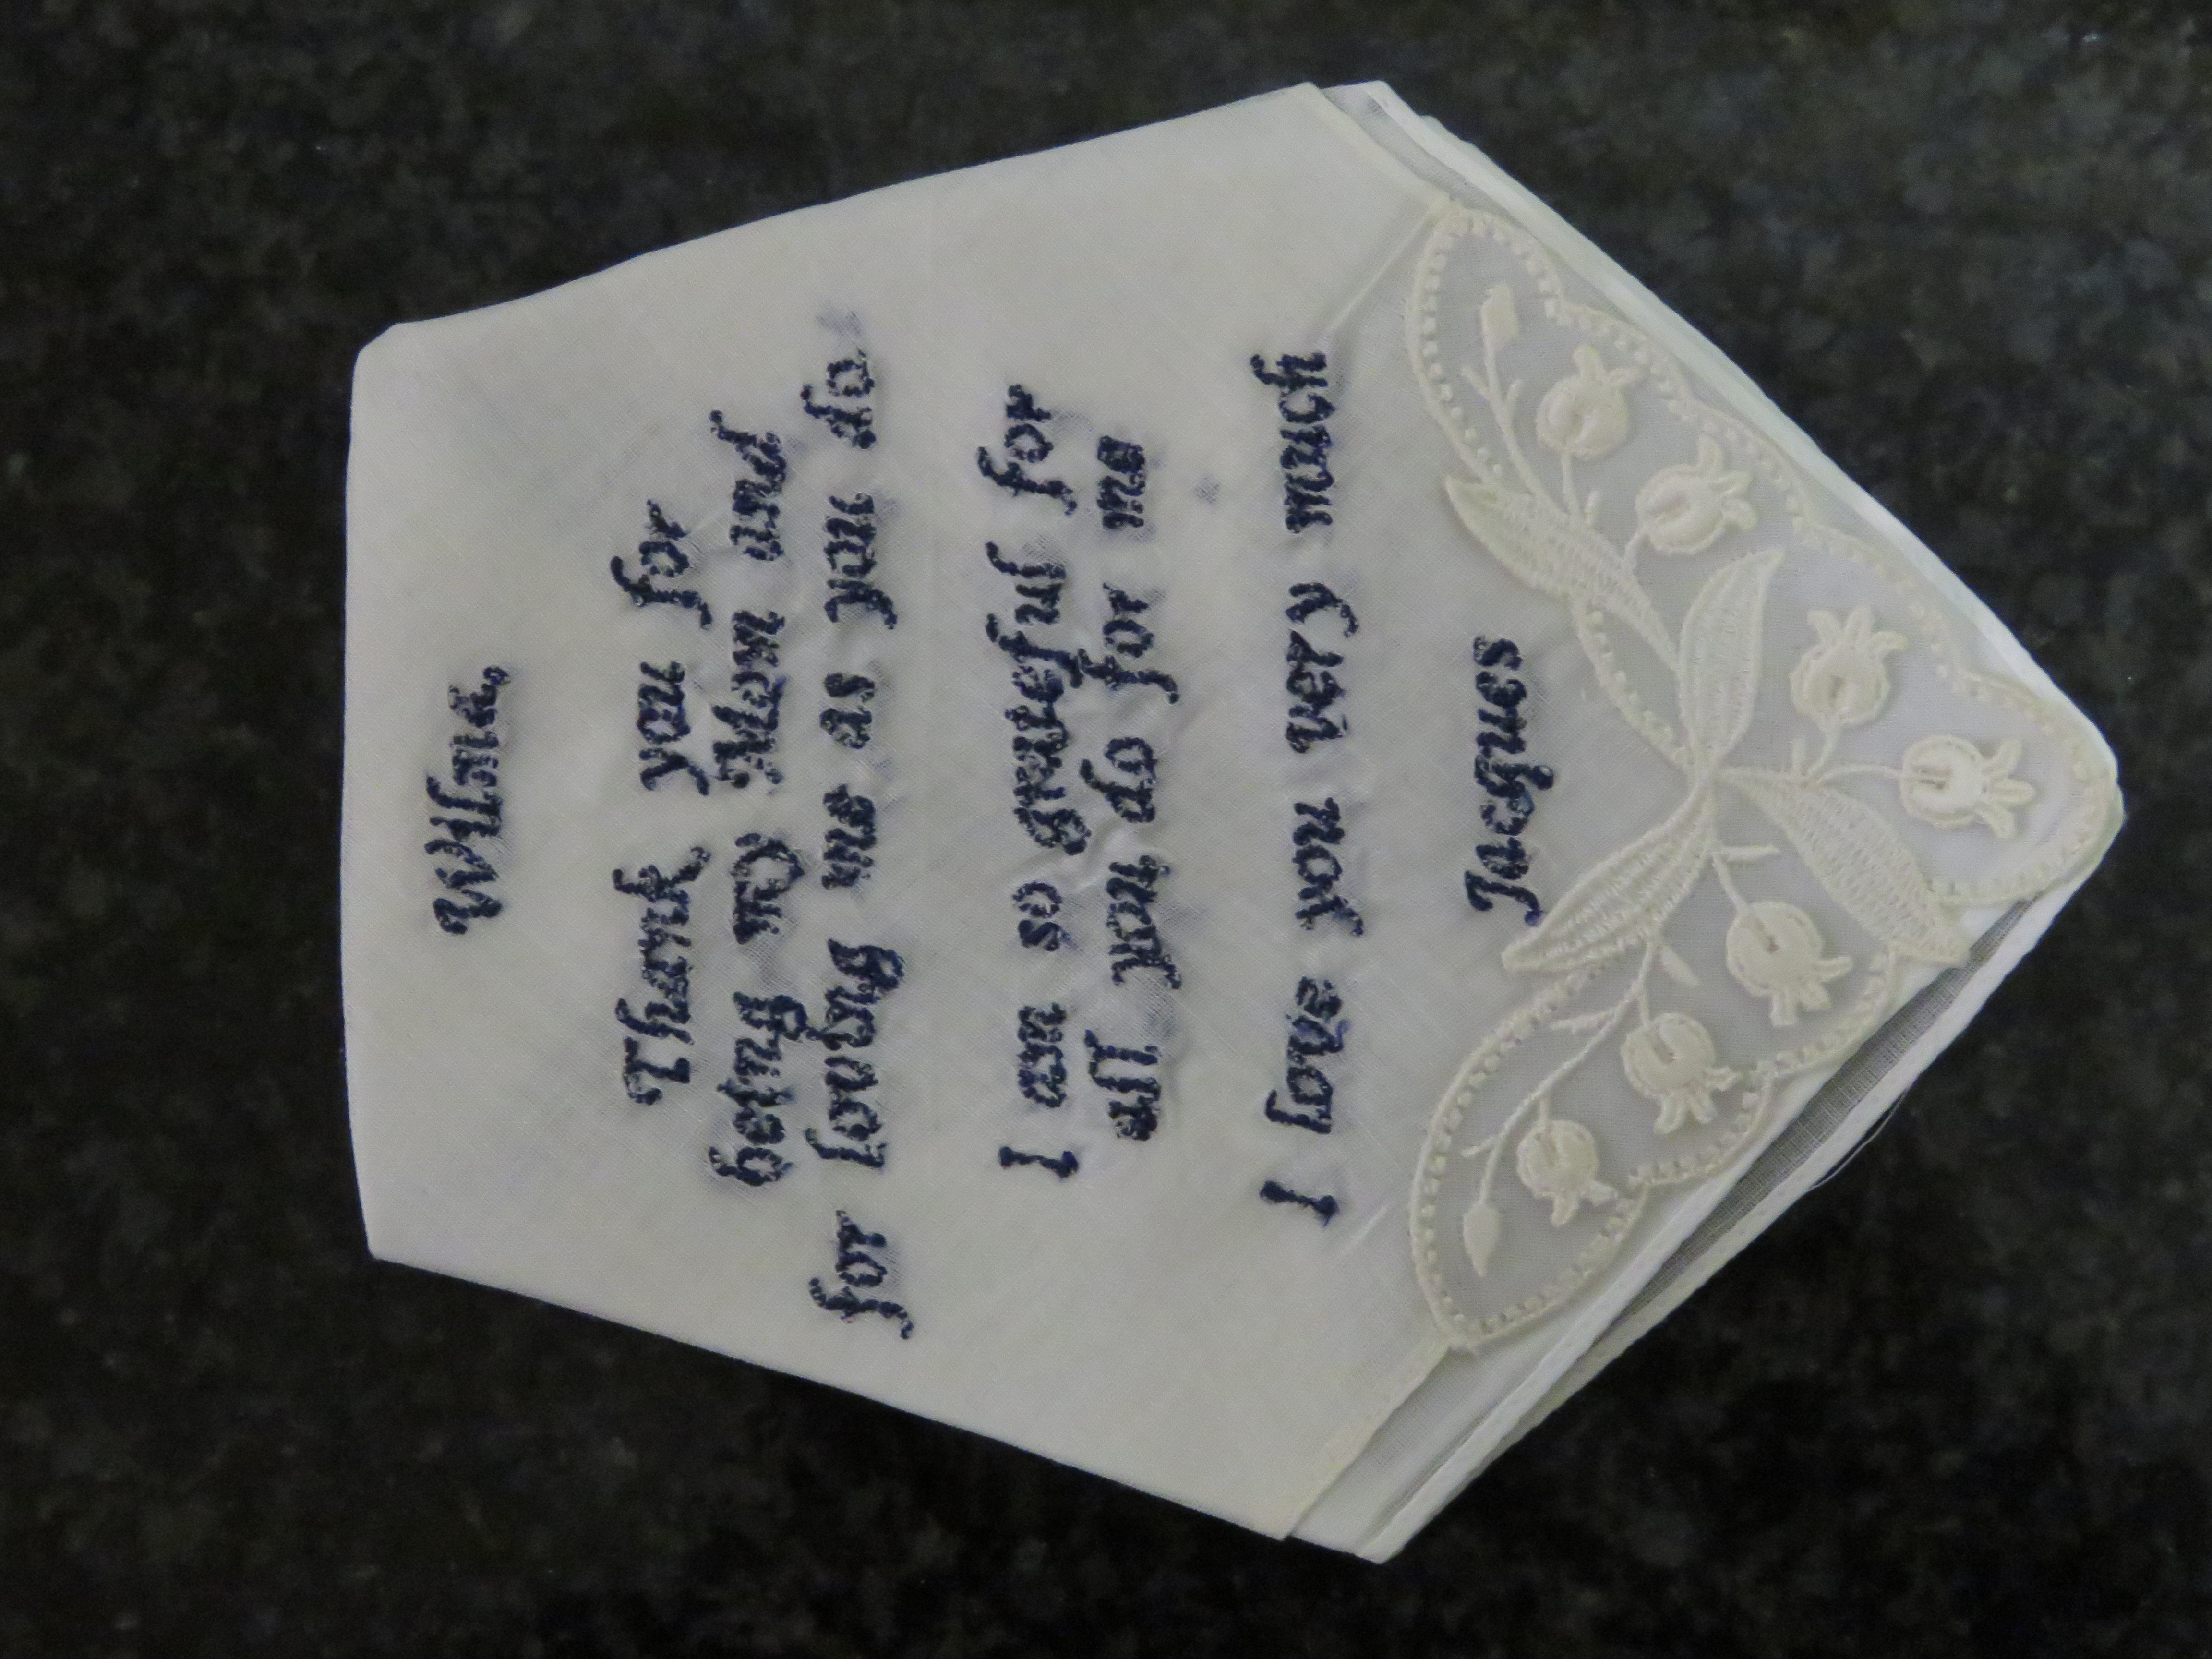 Wilna,
Thank you for
being my Mom and
for loving me as you do.
I am so grateful for
all you do for me
I love you very much
Jacques